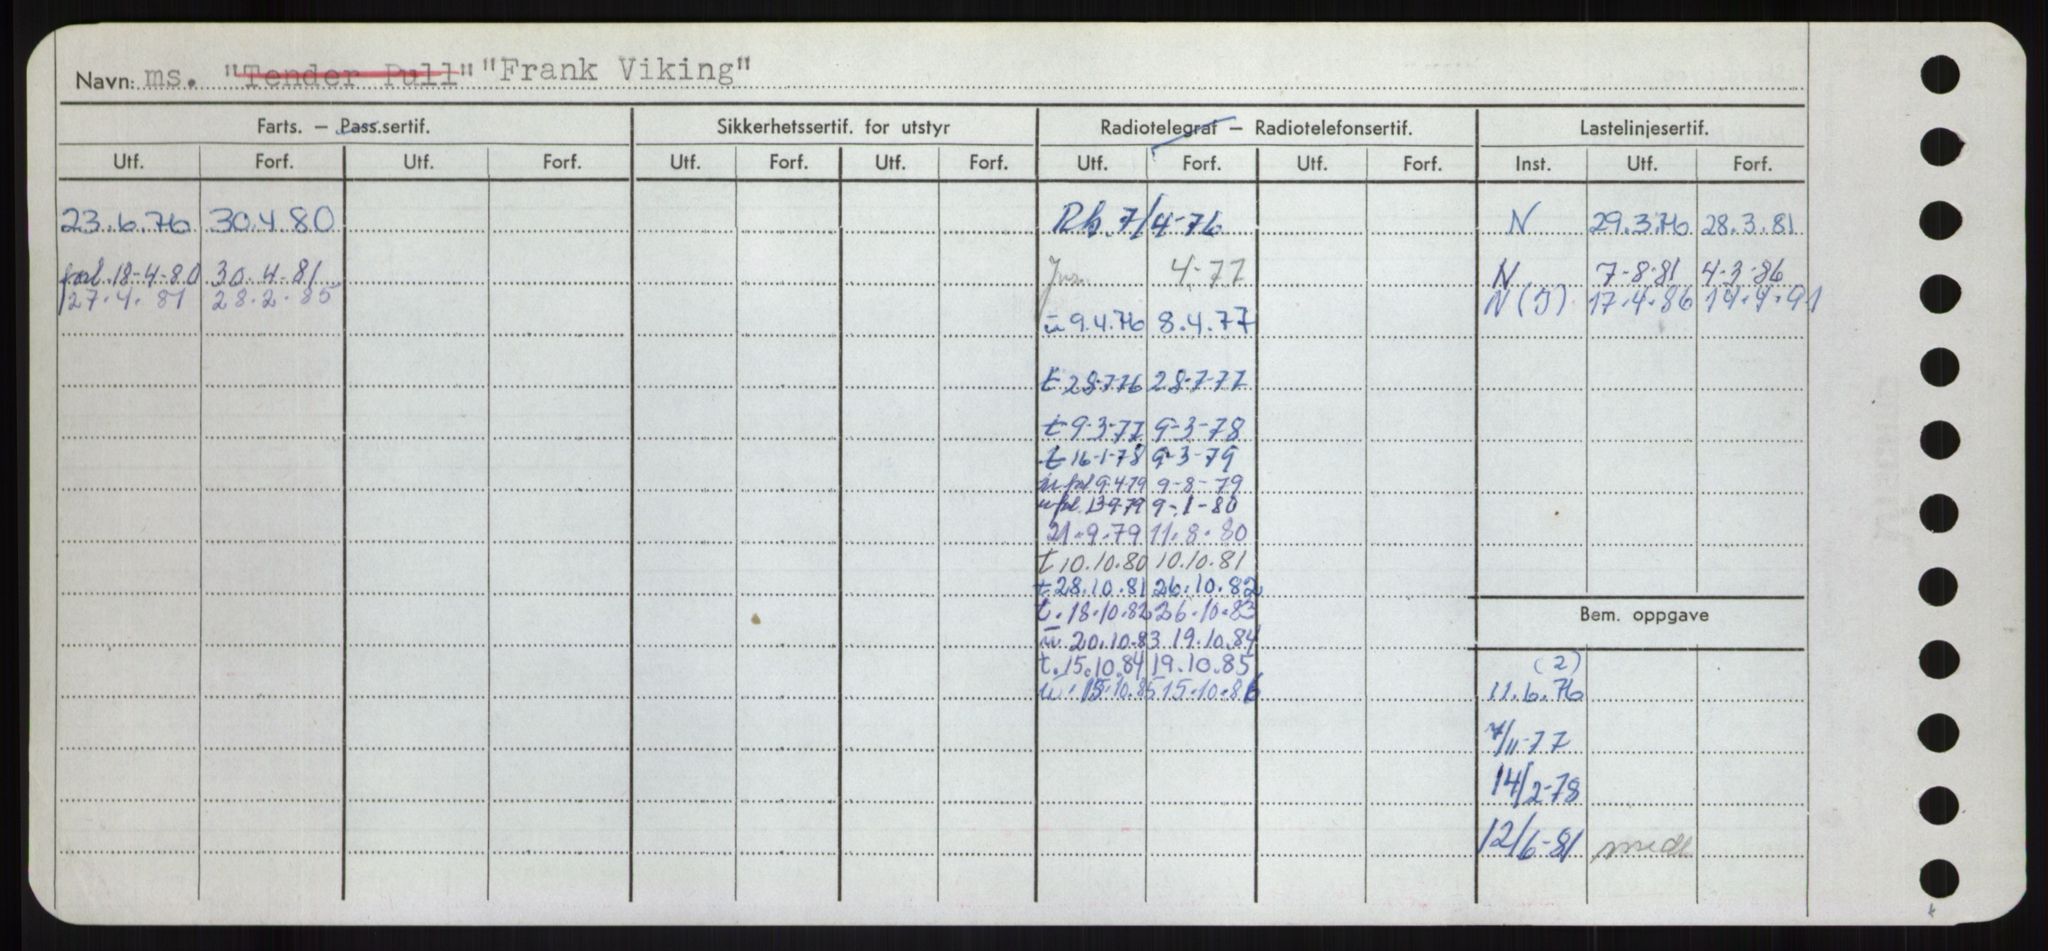 Navn: ms. "Tender Pull" "Frank Viking"
Farts. — Pass.sertif. Sikkerhetssertif. for utstyr Radiotelegraf — Radiotelefonsertif. Lastelinjesertif.
Utf. Forf. Utf. Forf. Utf. Forf. Utf. Forf. Utf. Forf. Utf. Forf. Inst. Utf. Forf.
23.6.76 30.4.80 Rb. 7/4-76 N 29.3.76 28.3.81
forl. 18-4-80 30.4.81 4-77 N 7-8-81 4-3-86
27.4.81 28.2.85 N (J) 17.4.86 14.4.91
u 9.4.76 8.4.77
t 28-7-76 28-7-77
t 9-3-77 9-3-78
t 16-1-78 9-3-79
u fol 9.4.79 9-8-79
u fol. 13-9-79 9-1-80
21.9.79 11.8.80
t 10.10.80 10.10.81
t 28.10.81 26.10.82
t. 18.10.82 26.10.83
Bem. oppgave
u 20.10.83 19.10.84
t. 15.10.84 19.10.85 (2)
u. 15.10.85 15.10.86 11.6.76
7/11-77
14/2-78
12/6-81 medl